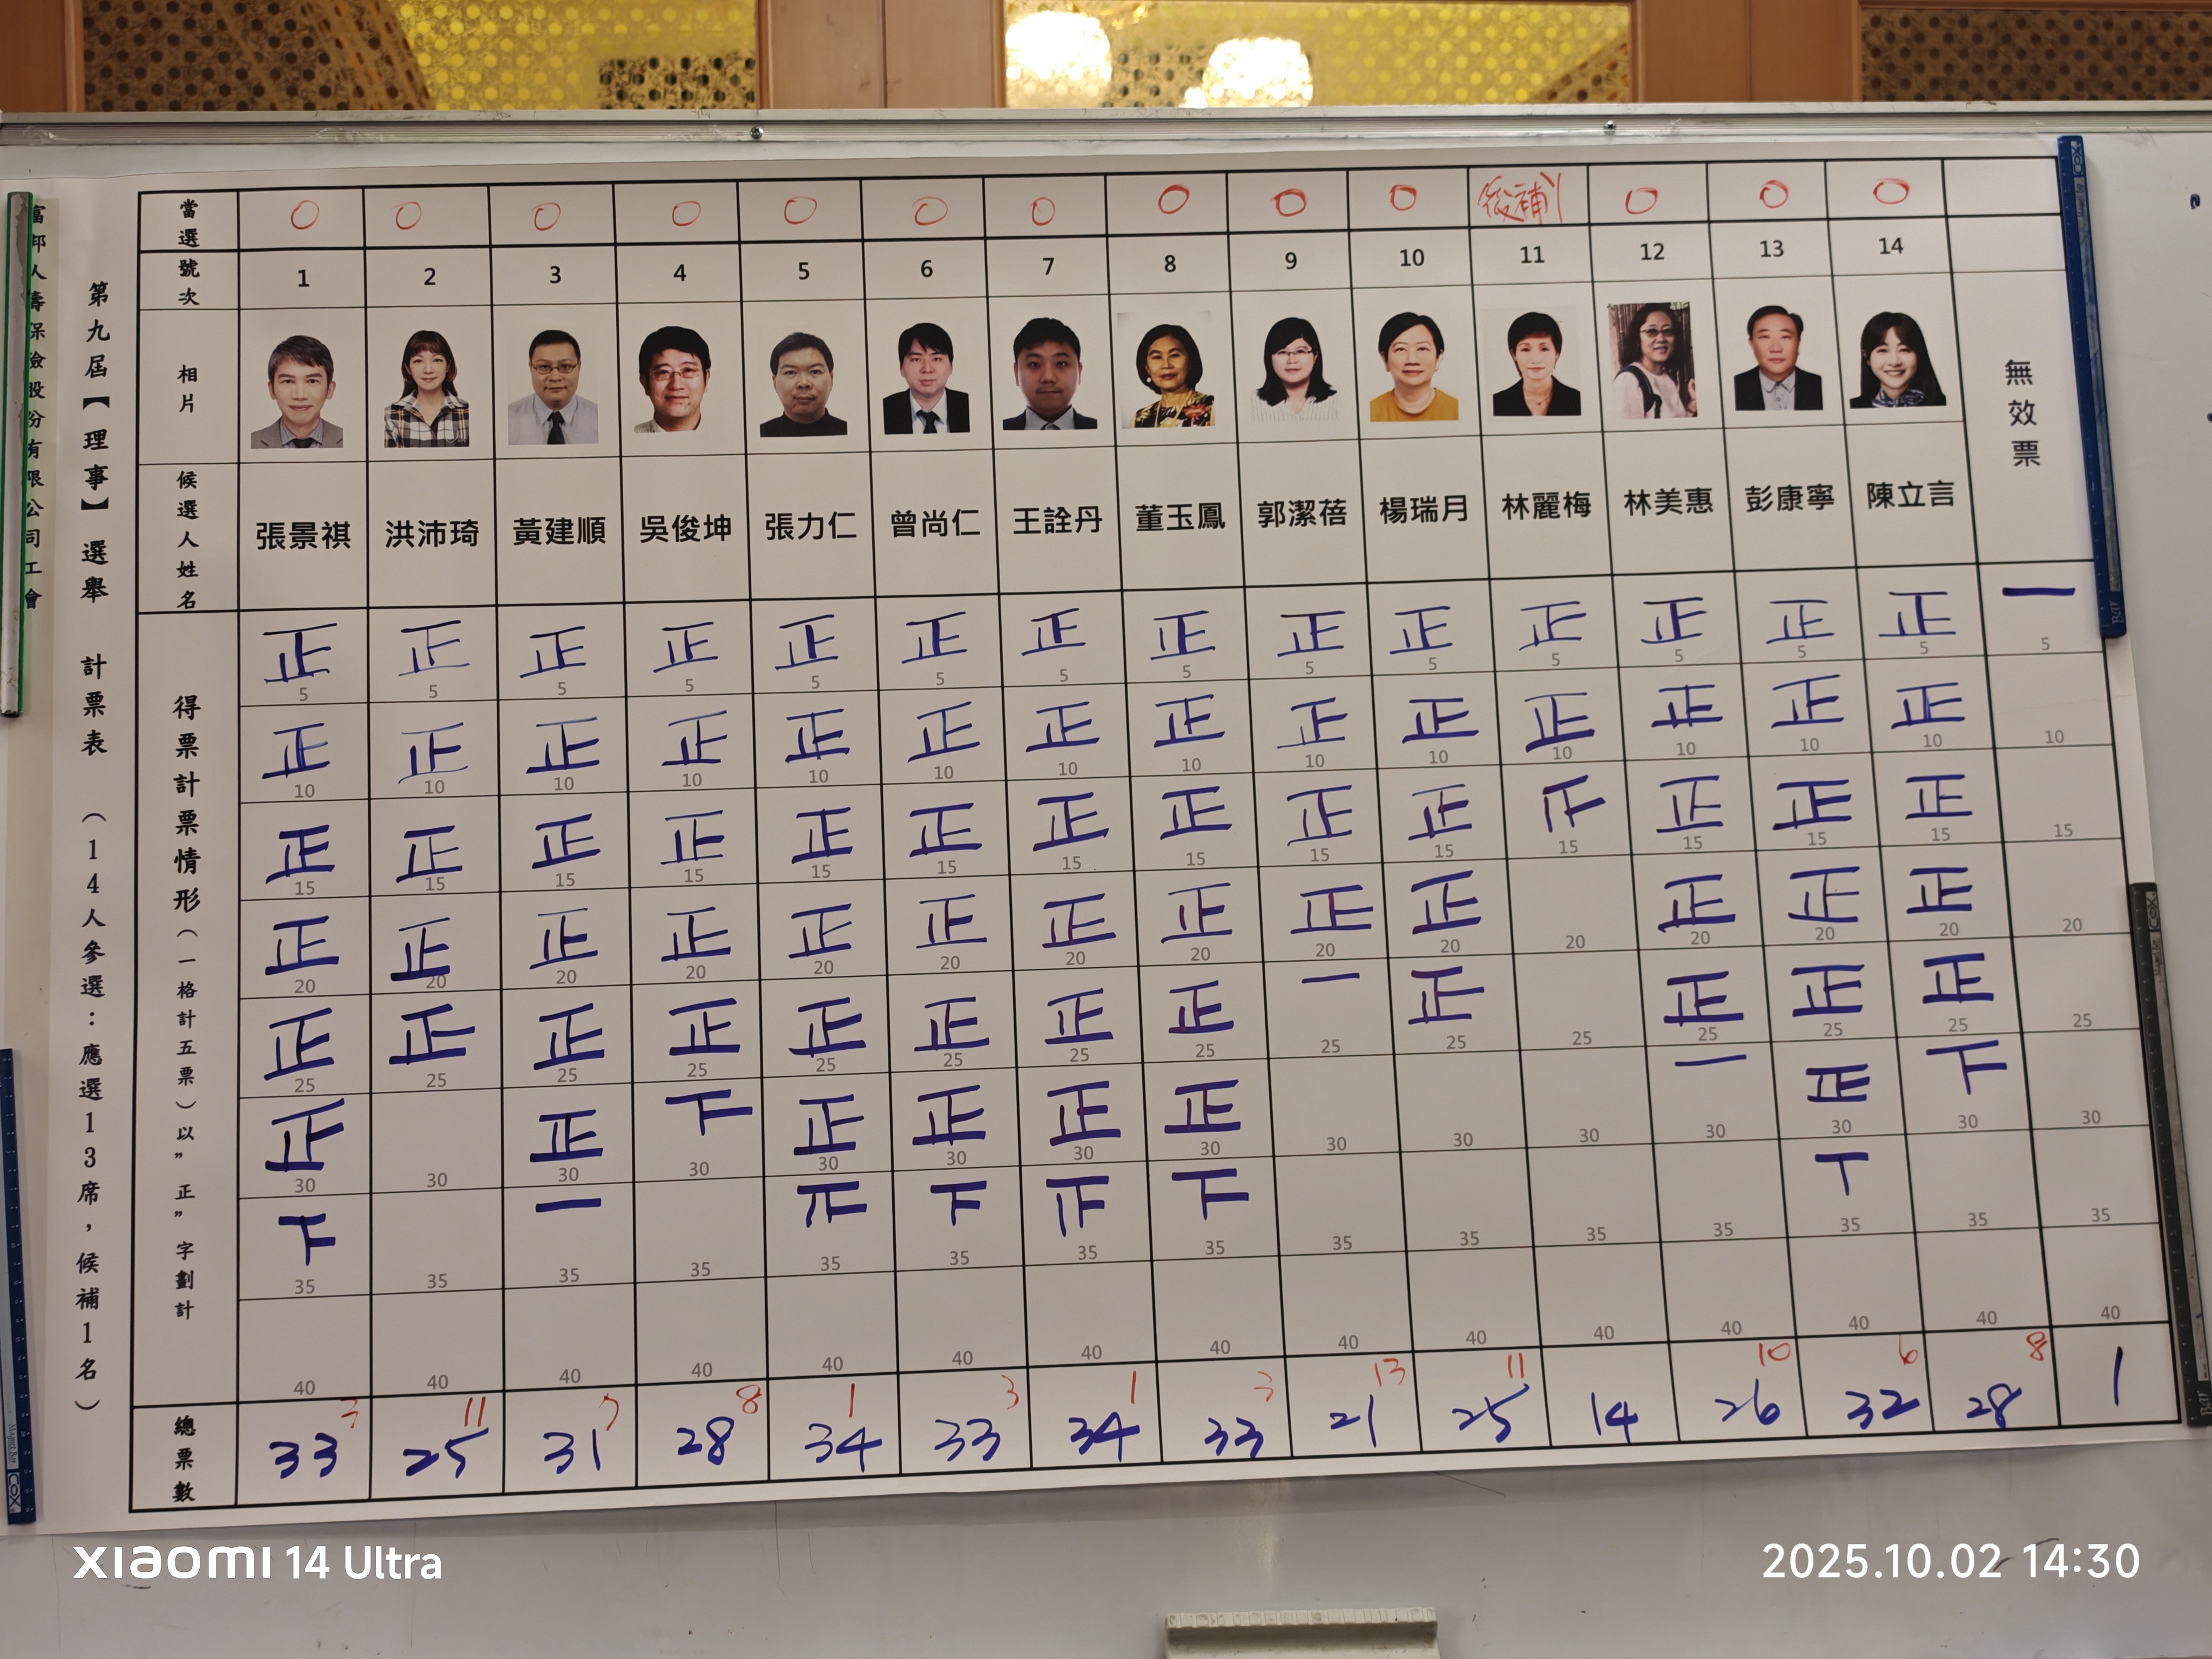 富邦人壽保險股份有限公司工會
第九屆【理事】選舉 計票表 (14人參選:應選13席,候補1名)
當選 ○ ○ ○ ○ ○ ○ ○ ○ ○ ○ 後補 ○ ○ ○
號次 1 2 3 4 5 6 7 8 9 10 11 12 13 14
相片
無效票
候選人姓名 張景祺 洪沛琦 黃建順 吳俊坤 張力仁 曾尚仁 王詮丹 董玉鳳 郭潔蓓 楊瑞月 林麗梅 林美惠 彭康寧 陳立言
得票計票情形(一格計五票)以"正"字劃計
正 正 正 正 正 正 正 正 正 正 正 正 正 正 一
5 5 5 5 5 5 5 5 5 5 5 5 5 5 5
正 正 正 正 正 正 正 正 正 正 正 正 正 正
10 10 10 10 10 10 10 10 10 10 10 10 10 10 10
正 正 正 正 正 正 正 正 正 正 正 正 正
15 15 15 15 15 15 15 15 15 15 15 15 15 15 15
正 正 正 正 正 正 正 正 正 正 正 正 正
20 20 20 20 20 20 20 20 20 20 20 20 20 20 20
正 正 正 正 正 正 正 正 一 正 正 正 正
25 25 25 25 25 25 25 25 25 25 25 25 25 25 25
正 正 下 正 正 正 正 一 正 下
30 30 30 30 30 30 30 30 30 30 30 30 30 30 30
下 一 下 下 丅
35 35 35 35 35 35 35 35 35 35 35 35 35 35 35
40 40 40 40 40 40 40 40 40 40 40 40 40 40 40
3 11 7 8 1 3 1 3 13 11 10 6 8
總票數 33 25 31 28 34 33 34 33 21 25 14 26 32 28 1
XIAOMI 14 Ultra
2025.10.02 14:30